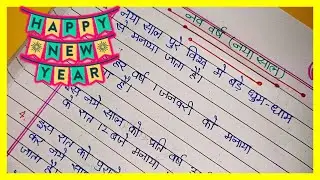 HAPPY
NEW
YEAR
नव वर्ष (नया साल)
नया साल पूरे विश्व में बड़े धूम-धाम
से मनाया जाता है।
वर्ष 1 जनवरी को मनाया
है।
नये साल को प्रति वर्ष
के रात 12 बजे मनाया
4.
इस रात को
कर नये साल
जाता है।